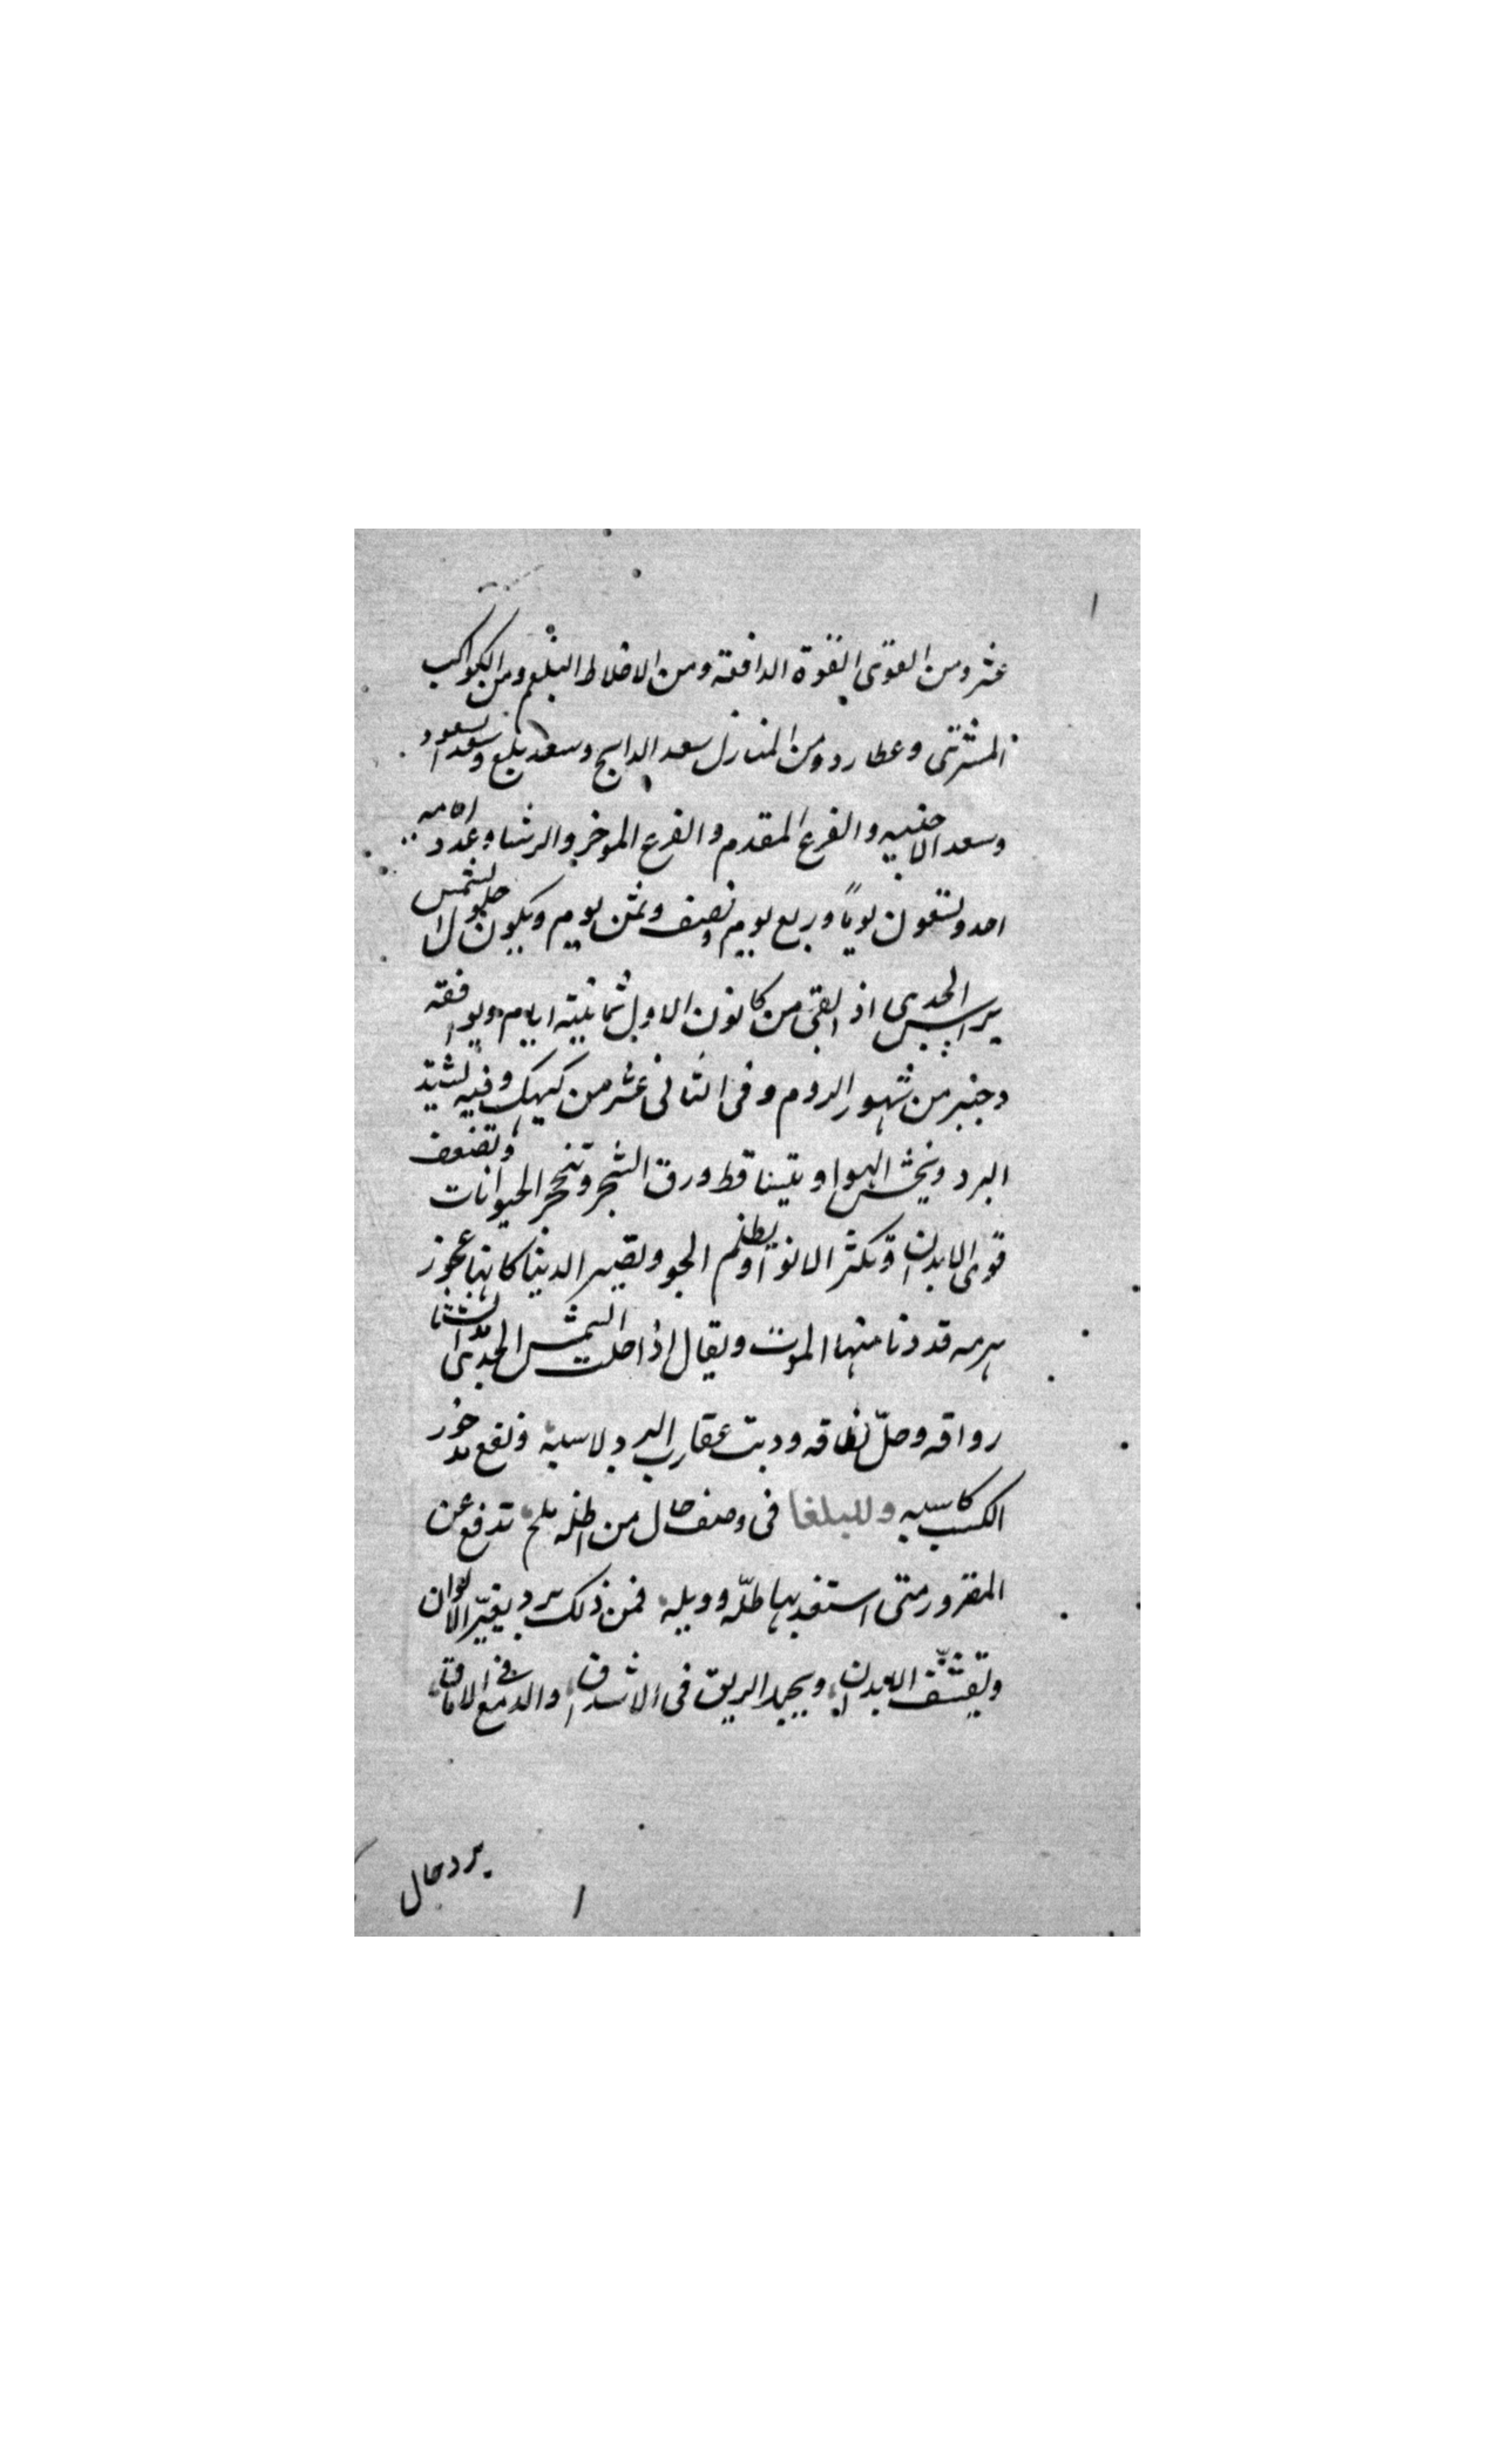 عشر ومن القوى القوة الدافعة ومن الاخلاط البلغم ومن الكواكب
المشترى وعطارد ومن المنازل سعد الدابح وسعد بلع وسعد السعود
وسعد الاخبيه والفرع المقدم والفرع الموخر والرشا وعدد ايامه
احد وتسعون يومًا وربع يوم ونصف وثمن يوم ويكون حلول الشمس
براس الجدى اذ ابقى من كانون الاول ثمانية ايام ويوافقه
دجنبر من شهور الروم وفى الثانى عشر من كيهك وفيه يشتد
البرد ويخشن الهوا ويتساقط ورق الشجر وتنجحر الحيوانات وتضعف
قوى الابدان وتكثر الانوا ويظلم الجو وتصير الدنيا كانها عجوز
هرمه قد دنا منها الموت ويقال اذا حلت الشمس الجدى مد الشتا
رواقه وحلّ نطاقه ودبت عقارب البرد لاسبة ونفع مدخور
الكسب كاسبه وللبلغا فى وصف حال من اظله ملح تدفع عن
المقرور متى استعد بها طلّه ووبله فمن ذلك برد يغيّر الالوان
ويقشف الابدان ويجمد الريق فى الاشداق والدمع فى الاماق
برد حال